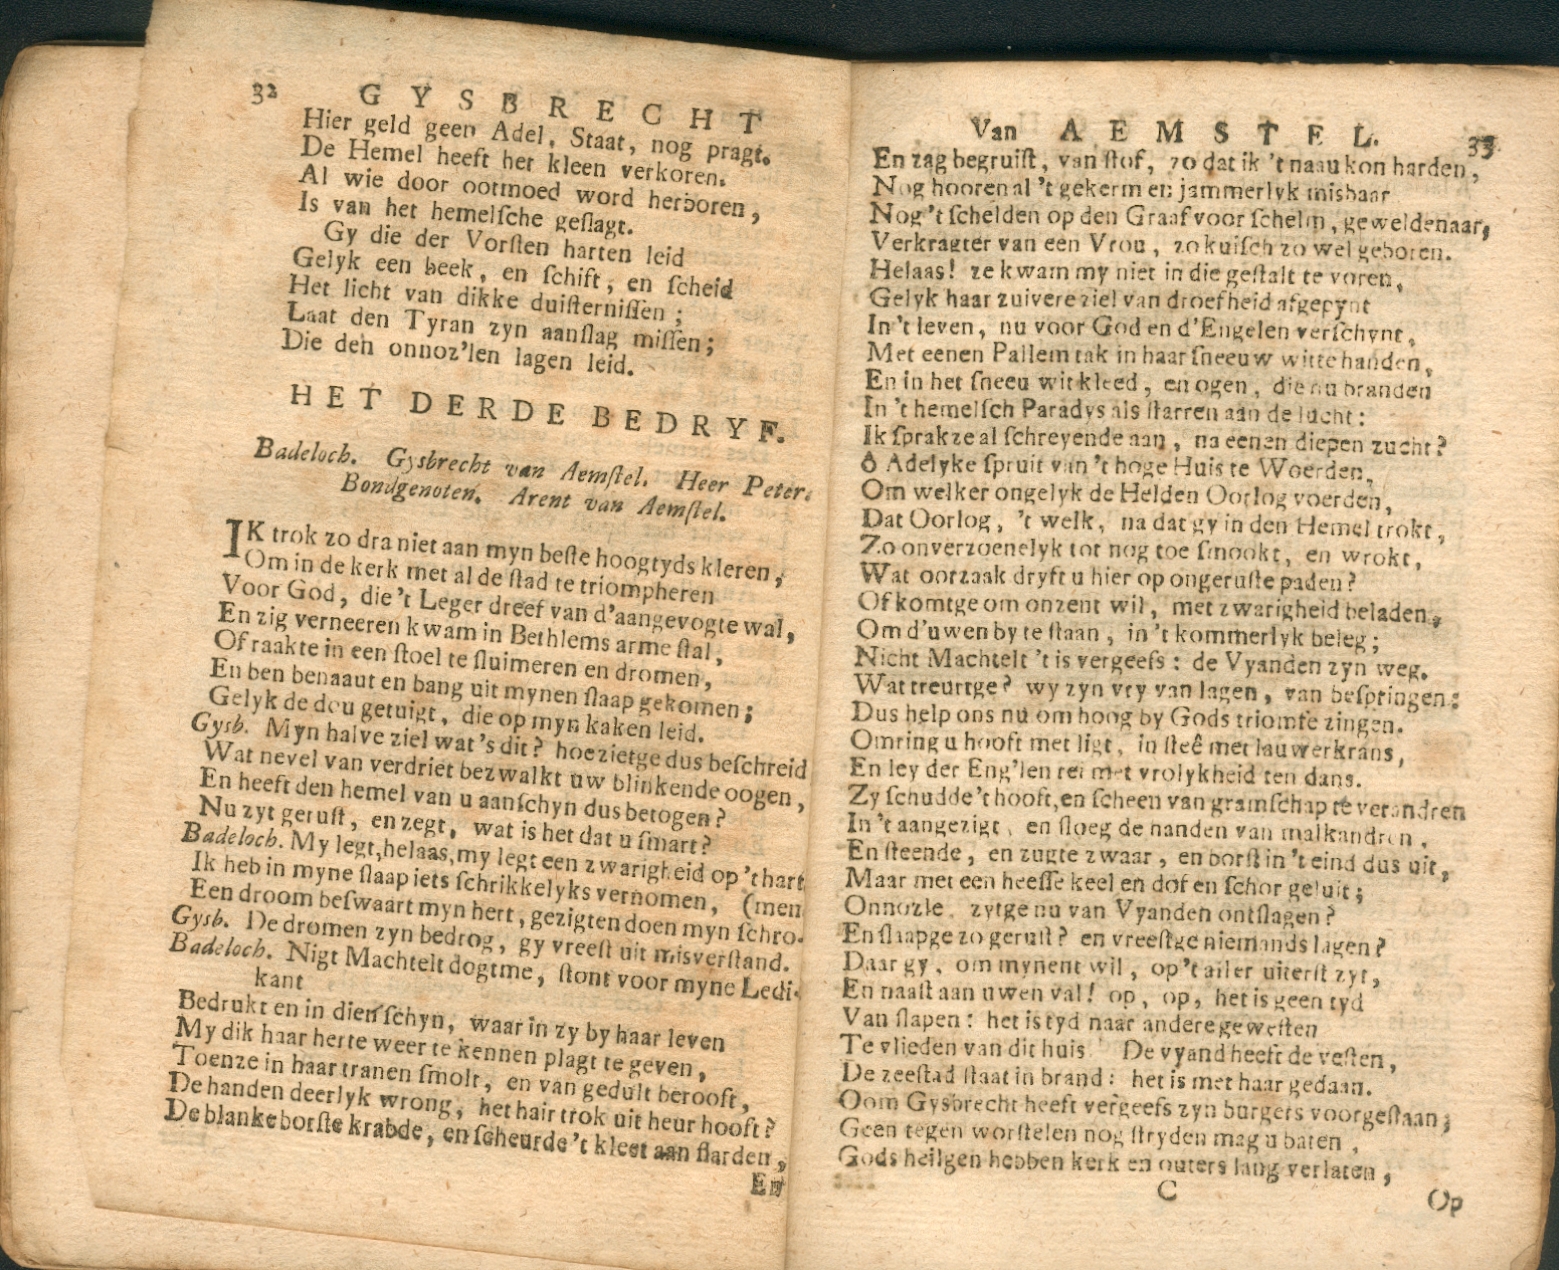 32 GYSBRECHT
Hier geld geen Adel, Staat, nog pragt.
De Hemel heeft het kleen verkoren.
Al wie door ootmoed word herboren,
Is van het hemelſche geſlagt.
Gy die der Vorſten harten leid
Gelyk een beek, en ſchift, en ſcheid
Het licht van dikke duiſterniſſen;
Laat den Tyran zyn aanſlag miſſen;
Die den onnoz'len lagen leid.
HET DERDE BEDRYF.
Badeloch. Gysbrecht van Aemſtel. Heer Peter.
Bondgenoten. Arent van Aemſtel.
IK trok zo dra niet aan myn beſte hoogtyds kleren,
Om in de kerk met al de ſtad te triompheren
Voor God, die 't Leger dreef van d'aangevogte wal,
En zig verneeren kwam in Bethlems arme ſtal,
Of raakte in een ſtoel te ſluimeren en dromen,
En ben benaaut en bang uit mynen ſlaap gekomen;
Gelyk de dou getuigt, die op myn kaken leid.
Gysb. Myn halve ziel wat 's dit? hoe zietge dus beſchreid
Wat nevel van verdriet bezwalkt uw blinkende oogen,
En heeft den hemel van u aanſchyn dus betogen?
Nu zyt geruſt, en zegt, wat is het dat u ſmart?
Badeloch. My legt, helaas, my legt een zwarigheid op 't hart
Ik heb in myne ſlaap iets ſchrikkelyks vernomen, (men
Een droom beſwaart myn hert, gezigten doen myn ſchro-
Gysb. De dromen zyn bedrog, gy vreeſt uit misverſtand.
Badeloch. Nigt Machtelt dogtme, ſtont voor myne Ledi-
kant
Bedrukt en in dien ſchyn, waar in zy by haar leven
My dik haar herte weer te kennen plagt te geven,
Toenze in haar tranen ſmolt, en van gedult berooft,
De handen deerlyk wrong, het hair trok uit heur hooft?
De blanke borſte krabde, en ſcheurde 't kleet aan flarden,
En
Van AEMSTEL. 33
En zag begruiſt, van ſtof, zo dat ik 't naau kon harden,
Nog hooren al 't gekerm en jammerlyk misbaar
Nog 't ſchelden op den Graaf voor ſchelm, geweldenaar,
Verkragter van een Vrou, zo kuiſch zo wel geboren.
Helaas! ze kwam my niet in die geſtalt te voren,
Gelyk haar zuivere ziel van droefheid afgepynt
In 't leven, nu voor God en d'Engelen verſchynt,
Met eenen Pallem tak in haar ſneeuw witte handen,
En in het ſneeu wit kleed, en ogen, die nu branden
In 't hemelſch Paradys als ſtarren aan de lucht:
Ik ſprak ze al ſchreyende aan, na eenen diepen zucht?
ô Adelyke ſpruit van 't hoge Huis te Woerden,
Om welker ongelyk de Helden Oorlog voerden,
Dat Oorlog, 't welk, na dat gy in den Hemel trokt,
Zo onverzoenelyk tot nog toe ſmookt, en wrokt,
Wat oorzaak dryft u hier op ongeruſte paden?
Of komtge om onzent wil, met zwarigheid beladen,
Om d'uwen by te ſtaan, in 't kommerlyk beleg;
Nicht Machtelt 't is vergeefs: de Vyanden zyn weg.
Wat treurtge? wy zyn vry van lagen, van beſpringen:
Dus help ons nu om hoog by Gods triomfe zingen.
Omring u hooft met ligt, in ſteê met lauwerkrans,
En ley der Eng'len rei met vrolykheid ten dans.
Zy ſchudde 't hooft, en ſcheen van gramſchap te verandren
In 't aangezigt, en ſloeg de handen van malkandren,
En ſteende, en zugte zwaar, en borſt in 't eind dus uit,
Maar met een heeſſe keel en dof en ſchor geluit;
Onnozle, zytge nu van Vyanden ontſlagen?
En ſlaapge zo geruſt? en vreeſtge niemands lagen?
Daar gy, om mynent wil, op 't aller uiterſt zyt,
En naaſt aan uwen val! op, op, het is geen tyd
Van ſlapen: het is tyd naar andere geweſten
Te vlieden van dit huis. De vyand heeft de veſten,
De zeeſtad ſtaat in brand: het is met haar gedaan.
Oom Gysbrecht heeft vergeefs zyn burgers voorgeſtaan;
Geen tegen worſtelen nog ſtryden mag u baten,
Gods heilgen hebben kerk en outers lang verlaten,
C Op